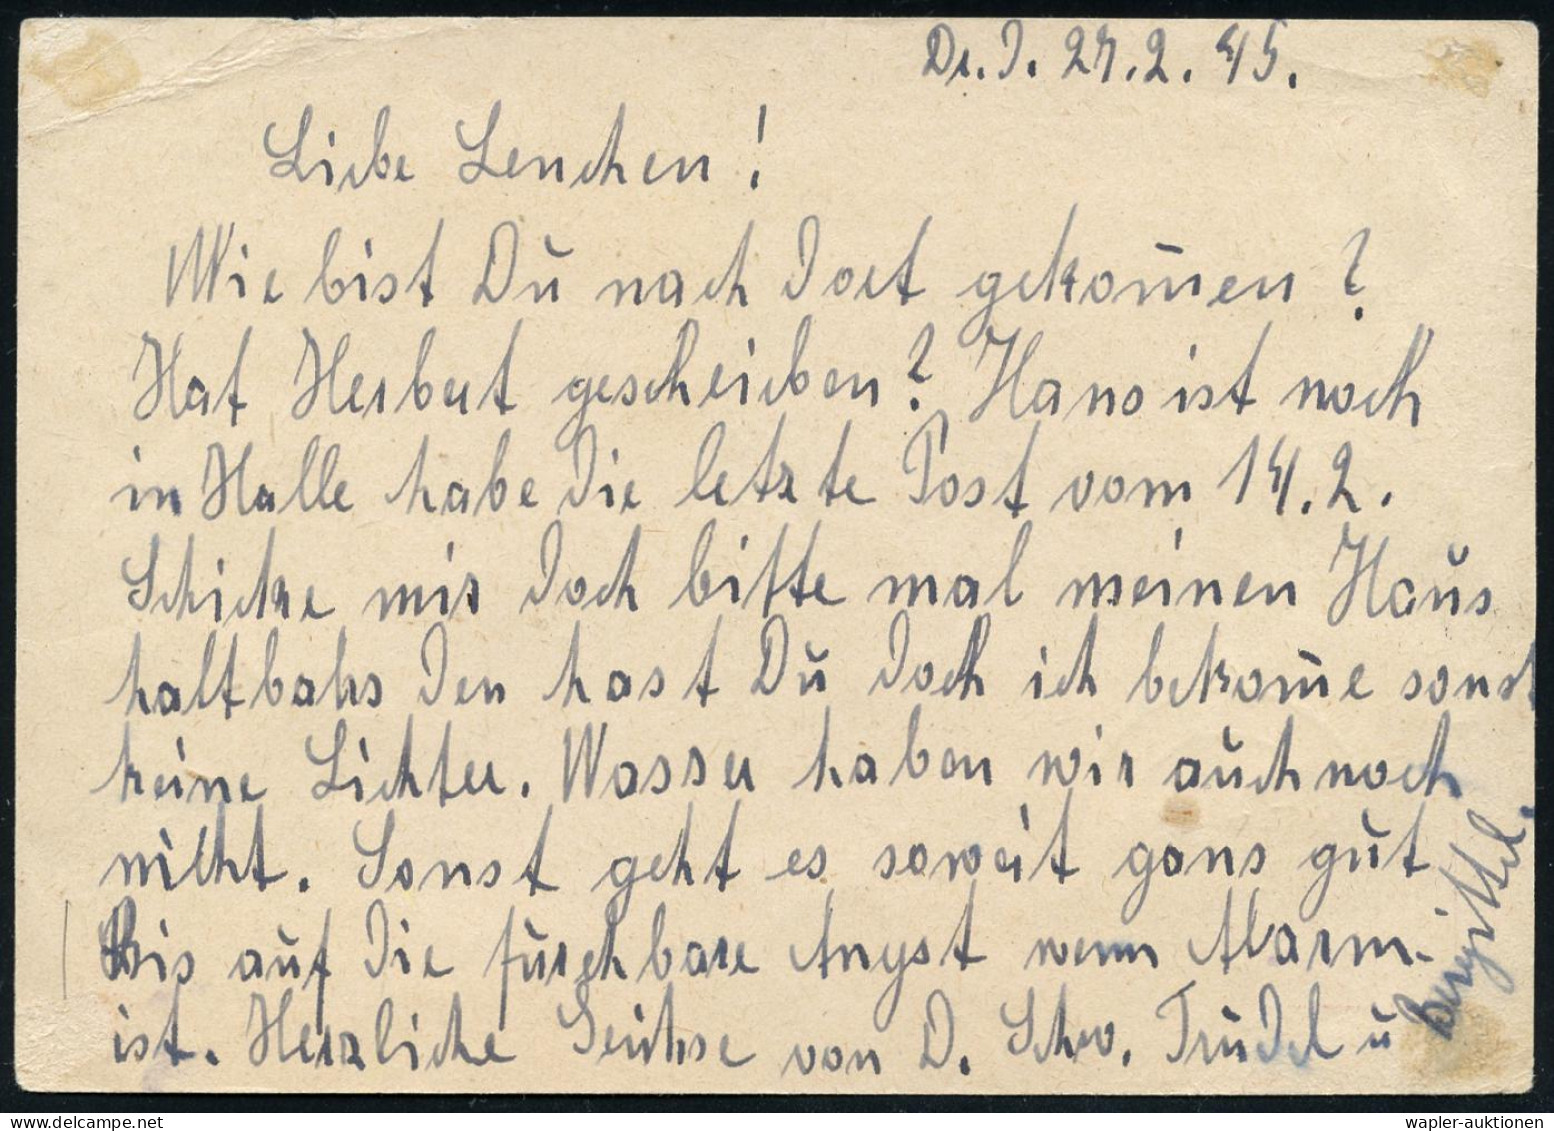 Dr. J. 27.2.45.
Liebe Lenchen!
Wie bist Du nach dort gekom̄en?
Hat Herbert geschrieben? Hans ist noch
in Halle habe die letzte Post vom 14.2.
Schicke mir doch bitte mal meinen Haus
haltbahs den hast Du doch ich bekom̄e sonst
keine Lichter. Wasser haben wir auch noch
nicht. Sonst geht es soweit gans gut
Bis auf die furchbare Angst wenn Alarm
ist. Herzliche Grühse von D. Schw. Trudel u
Bergittel.
wapler-auktionen